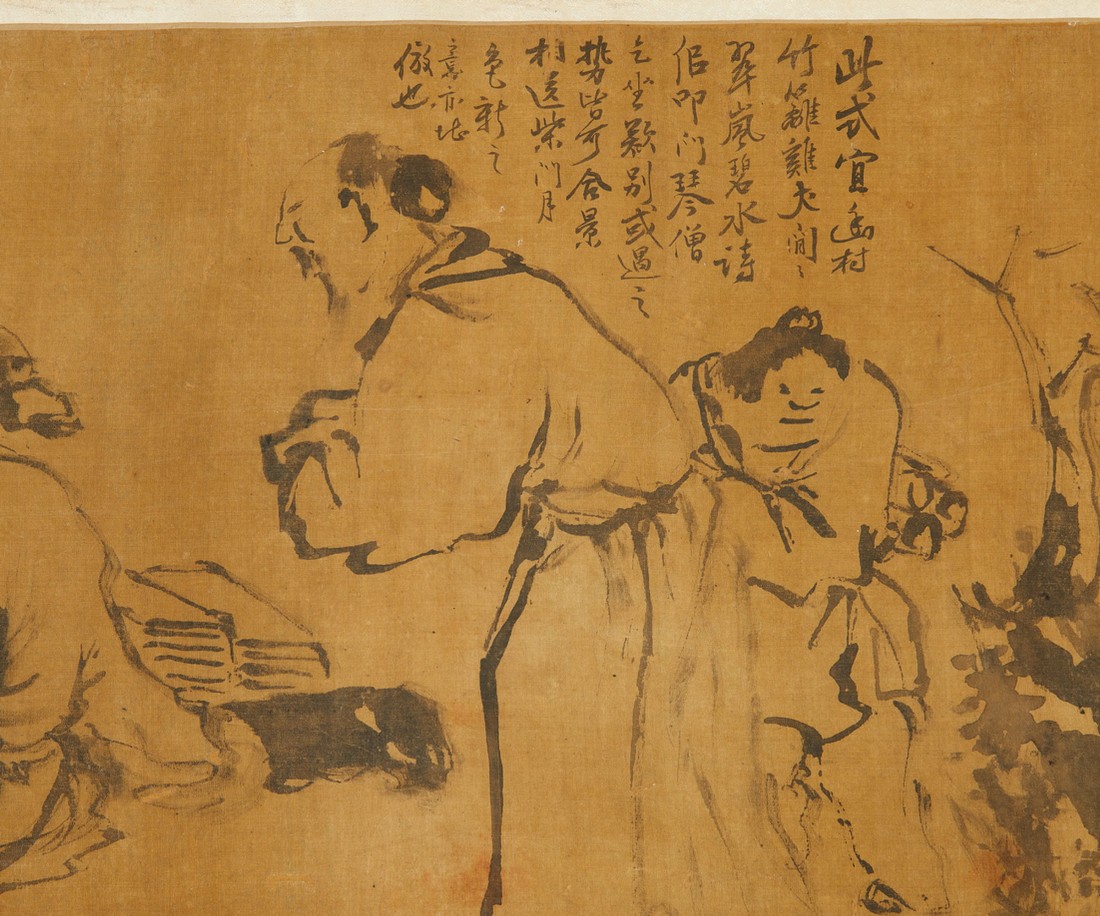 此式宜幽村
竹籬雞犬間〻
翠嵐碧水詩
侶叩門琴僧
乞坐歎別或過之
勢皆可合景
相送柴門月
色新之
意亦堪
倣也